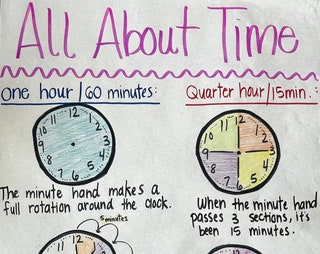 All About Time
one hour/60 minutes:
Quarter hour/15min.:
11 12 1
10 2
9 3
8 4
7 6 5
11 12 1
10 2
9 3
8 4
7 6 5
The minute hand makes a
full rotation around the clock.
When the minute hand
passes 3 sections, it's
been 15 minutes.
5 minutes
11 12
12